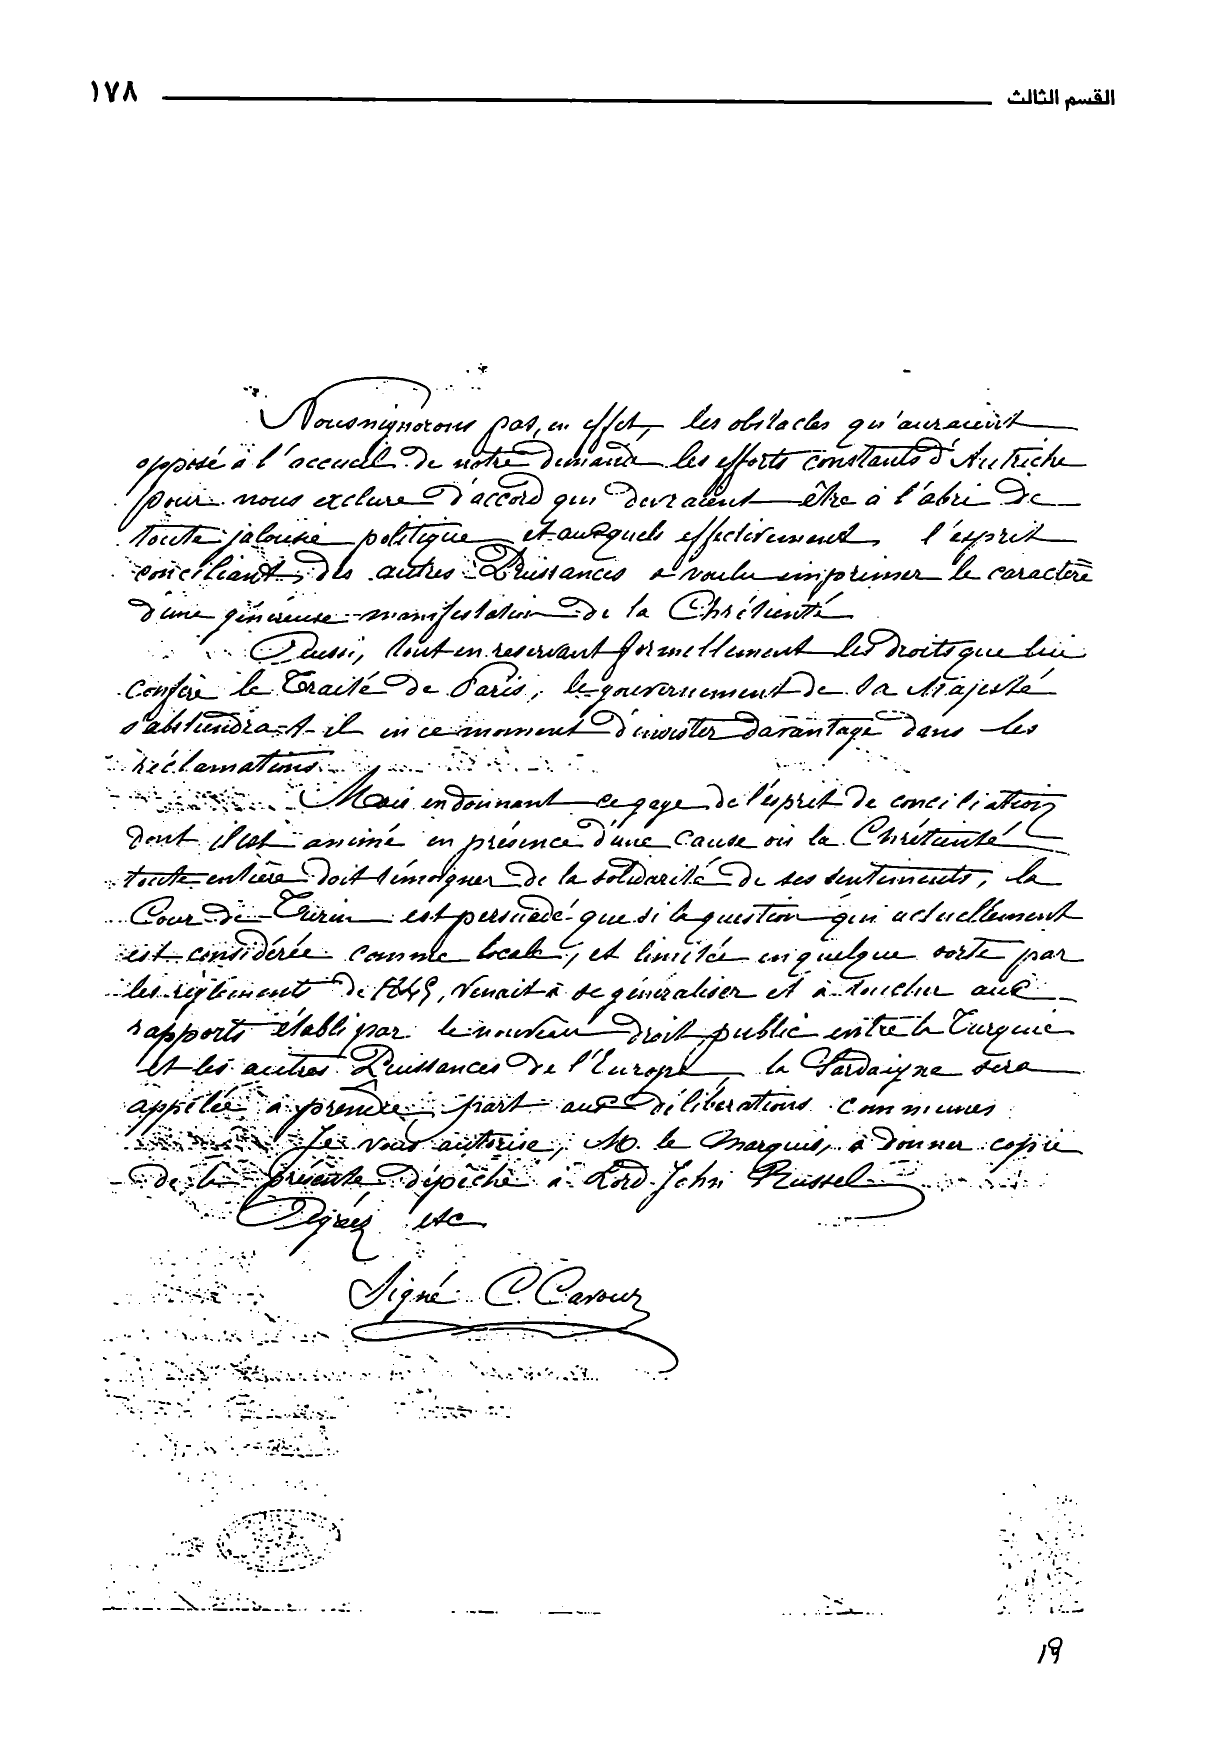 القسم الثالث ١٧٨
Nous n'ignorons pas, en effet, les obstacles qu'auraient
opposé à l'accueil de notre demande les efforts constants d'Autriche
pour nous exclure d'accord qui devraient être à l'abri de
toute jalousie politique et auxquels effectivement l'esprit
conciliant des autres Puissances a voulu imprimer le caractère
d'une généreuse manifestation de la Chrétienté
Aussi, tout en reservant formellement les droits que lui
confère le Traité de Paris, le gouvernement de Sa Majesté
s'abstiendra-t-il en ce moment d'insister davantage dans les
réclamations
Mais en donnant ce gage de l'esprit de conciliation
dont il est animé en présence d'une cause où la Chrétienté
toute entière doit témoigner de la solidarité de ses sentiments, la
Cour de Turin est persuadé que si la question qui actuellement
est considérée comme locale, et limitée en quelque sorte par
les règlements de 1845, venait à se généraliser et à toucher aux
rapports établi par le nouveau droit public entre la Turquie
et les autres Puissances de l'Europe, la Sardaigne sera
appelée à prendre part aux délibérations communes
Je vous autorise, M. le Marquis, à donner copie
de la présente dépêche à Lord John Russel
Agréez etc
Signé C. Cavour
19